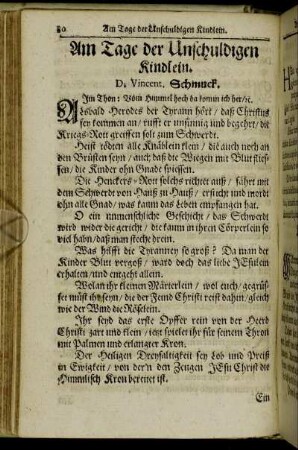 80 Am Tage der Unschuldigen Kindlein.
Am Tage der Unschuldigen
Kindlein.
D. Vincent. Schmuck.
Im Thon: Vom Himmel hoch da komm ich her/ꝛc.
Alsbald Herodes der Tyrann hört / daß Christus
sey kommen an / rufft er unsinnig und begehrt / die
Kriegs-Rott greiffen solt zum Schwerdt.
Heist tödten alle Knäblein klein / die auch noch an
den Brüsten seyn / auch daß die Wiegen mit Blut fliessen /
die Kinder ohn Gnade spiessen.
Die Henckers-Rott solchs richtet auß / fährt mit
dem Schwerdt von Hauß zu Hauß / ersucht und mordt
ohn alle Gnad / was kaum das Leben empfangen hat.
O ein unmenschliche Geschicht / das Schwerdt
wird wider die gericht / die kaum in ihren Cörperlein so
viel habn / daß man steche drein.
Was hilfft die Tyranney so groß? Da man der
Kinder Blut vergoß / ward doch das liebe JEsulein
erhaltn und entgeht allein.
Wolan ihr kleinen Märterlein / wol euch / gegrüsset
müst ihr seyn / die der Feind Christi reist dahin / gleich
wie der Wind die Röselein.
Ihr seyd das erste Opffer rein von der Heerd
Christi zart und klein / itzt spielet ihr für seinem Thron
mit Palmen und erlangter Kron.
Der Heiligen Dreyfaltigkeit sey Lob und Preiß
in Ewigkeit / von der'n den Zeugen JEsu Christ die
Himmlisch Kron bereitet ist.
Ein